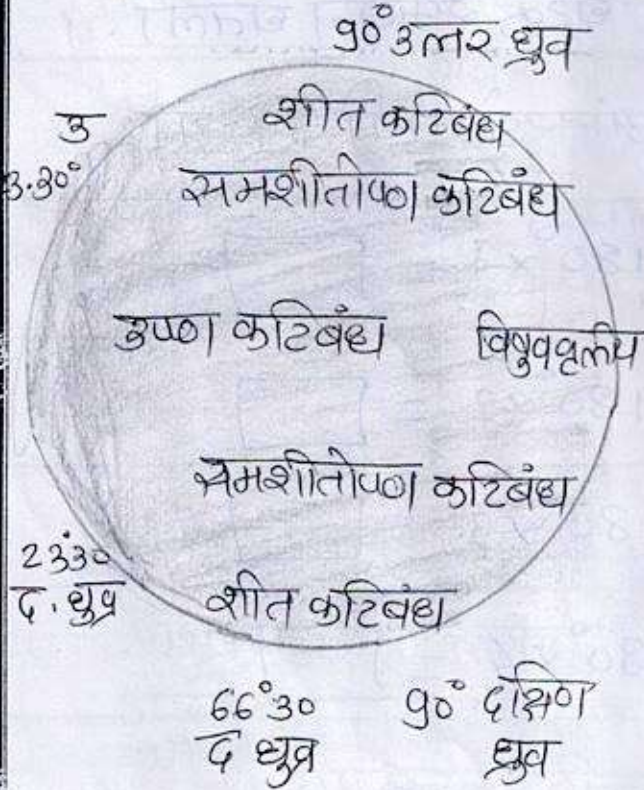 90° उत्तर ध्रुव
उ
3.30°
शीत कटिबंध
समशीतोष्ण कटिबंध
उष्ण कटिबंध विषुववृत्तीय
समशीतोष्ण कटिबंध
23°30
द. ध्रुव
शीत कटिबंध
66°30
द ध्रुव
90° दक्षिण
ध्रुव